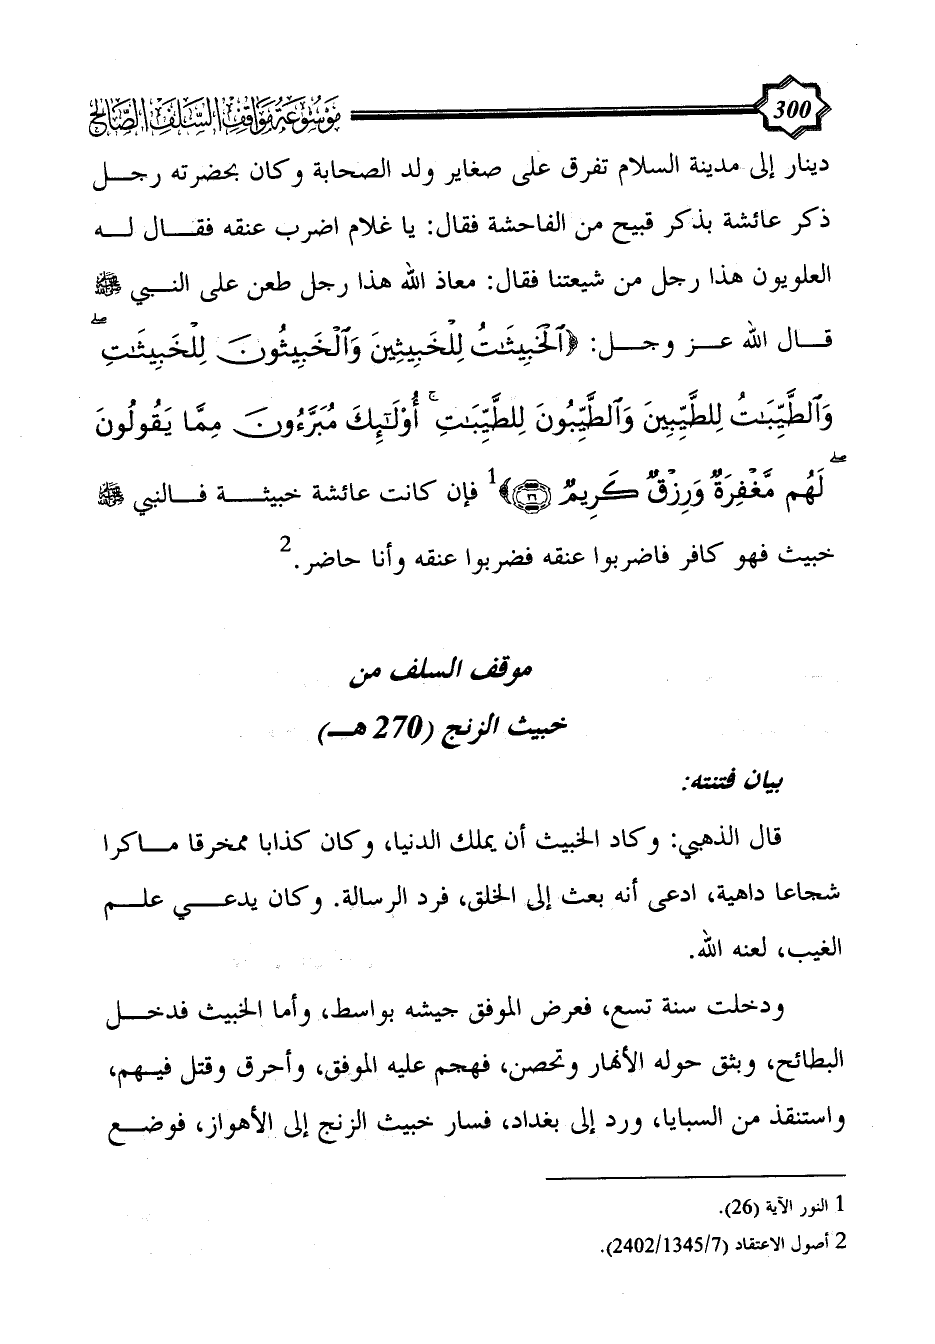 300 موسوعة مواقف السلف الصالح
دينار إلى مدينة السلام تفرق على صغاير ولد الصحابة وكان بحضرته رجل
ذكر عائشة بذكر قبيح من الفاحشة فقال: يا غلام اضرب عنقه فقال له
العلويون هذا رجل من شيعتنا فقال: معاذ الله هذا رجل طعن على النبي ﷺ
قال الله عز وجل: ﴿ٱلْخَبِيثَٰتُ لِلْخَبِيثِينَ وَٱلْخَبِيثُونَ لِلْخَبِيثَٰتِ ۖ
وَٱلطَّيِّبَٰتُ لِلطَّيِّبِينَ وَٱلطَّيِّبُونَ لِلطَّيِّبَٰتِ ۚ أُوْلَٰٓئِكَ مُبَرَّءُونَ مِمَّا يَقُولُونَ ۖ
لَهُم مَّغْفِرَةٌ وَرِزْقٌ كَرِيمٌ ٢٦﴾1 فإن كانت عائشة خبيثة فالنبي ﷺ
خبيث فهو كافر فاضربوا عنقه فضربوا عنقه وأنا حاضر.2
موقف السلف من
خبيث الزنج (270 هـ)
بيان فتنته:
قال الذهبي: وكاد الخبيث أن يملك الدنيا، وكان كذابا ممخرقا ماكرا
شجاعا داهية، ادعى أنه بعث إلى الخلق، فرد الرسالة. وكان يدعي علم
الغيب، لعنه الله.
ودخلت سنة تسع، فعرض الموفق جيشه بواسط، وأما الخبيث فدخل
البطائح، وبثق حوله الأنهار وتحصن، فهجم عليه الموفق، وأحرق وقتل فيهم،
واستنقذ من السبايا، ورد إلى بغداد، فسار خبيث الزنج إلى الأهواز، فوضع
1 النور الآية (26).
2 أصول الاعتقاد (2402/1345/7).